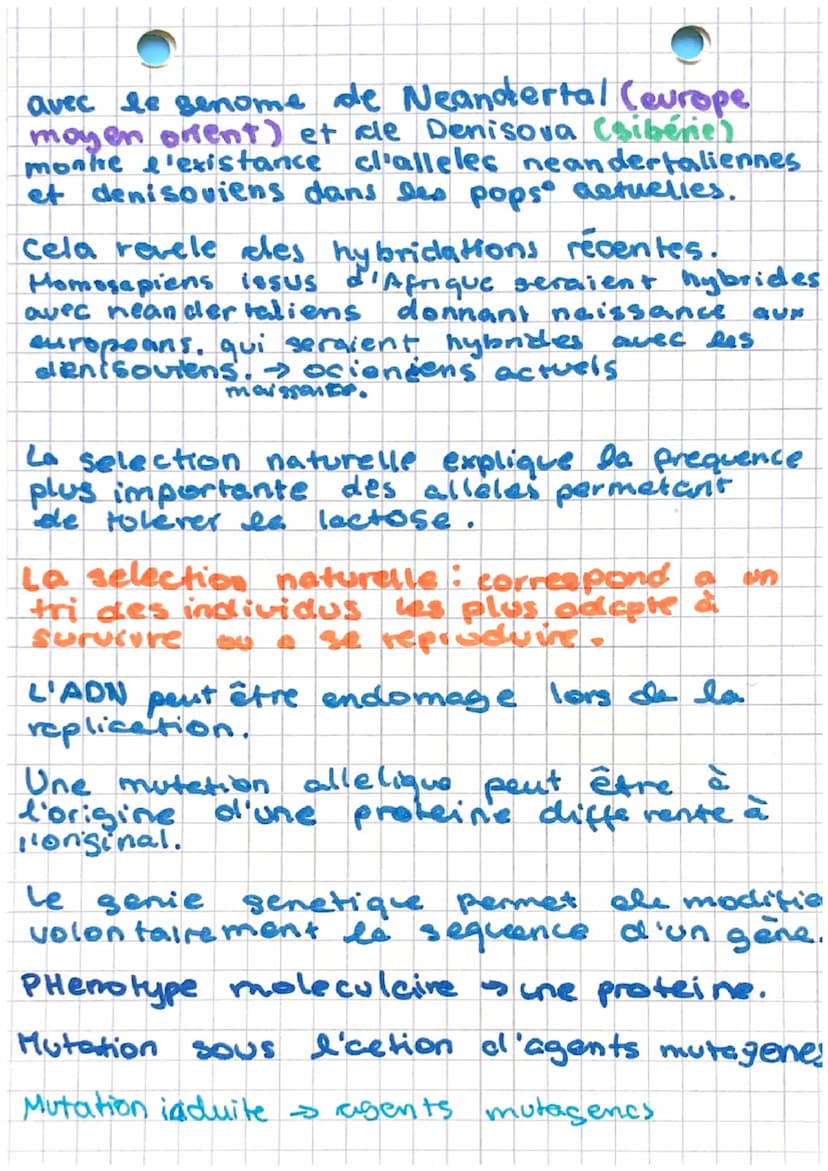 avec le genome de Neandertal (europe
moyen orient) et de Denisova (sibérie)
montre l'existance d'alleles neandertaliennes
et denisoviens dans les pops° actuelles.
Cela revele des hybridations récentes.
Homosapiens issus d'Afrique seraient hybrides
avec neandertaliens donnant naissance aux
europeans. qui seraient hybrides avec les
denisoviens. → ocianéens actuels
naissance.
La selection naturelle explique la frequence
plus importante des alleles permetant
de tolerer le lactose.
La selection naturelle : correspond a un
tri des individus les plus adapte à
survivre ou a se reproduire.
L'ADN peut être endomage lors de la
replication.
Une mutation allelique peut être à
l'origine d'une proteine differente à
l'original.
Le genie genetique permet de modifie
volontairement la sequence d'un gène.
PHenotype moleculaire → une proteine.
Mutation sous l'action d'agents mutagenes
Mutation induite → agents mutagenes